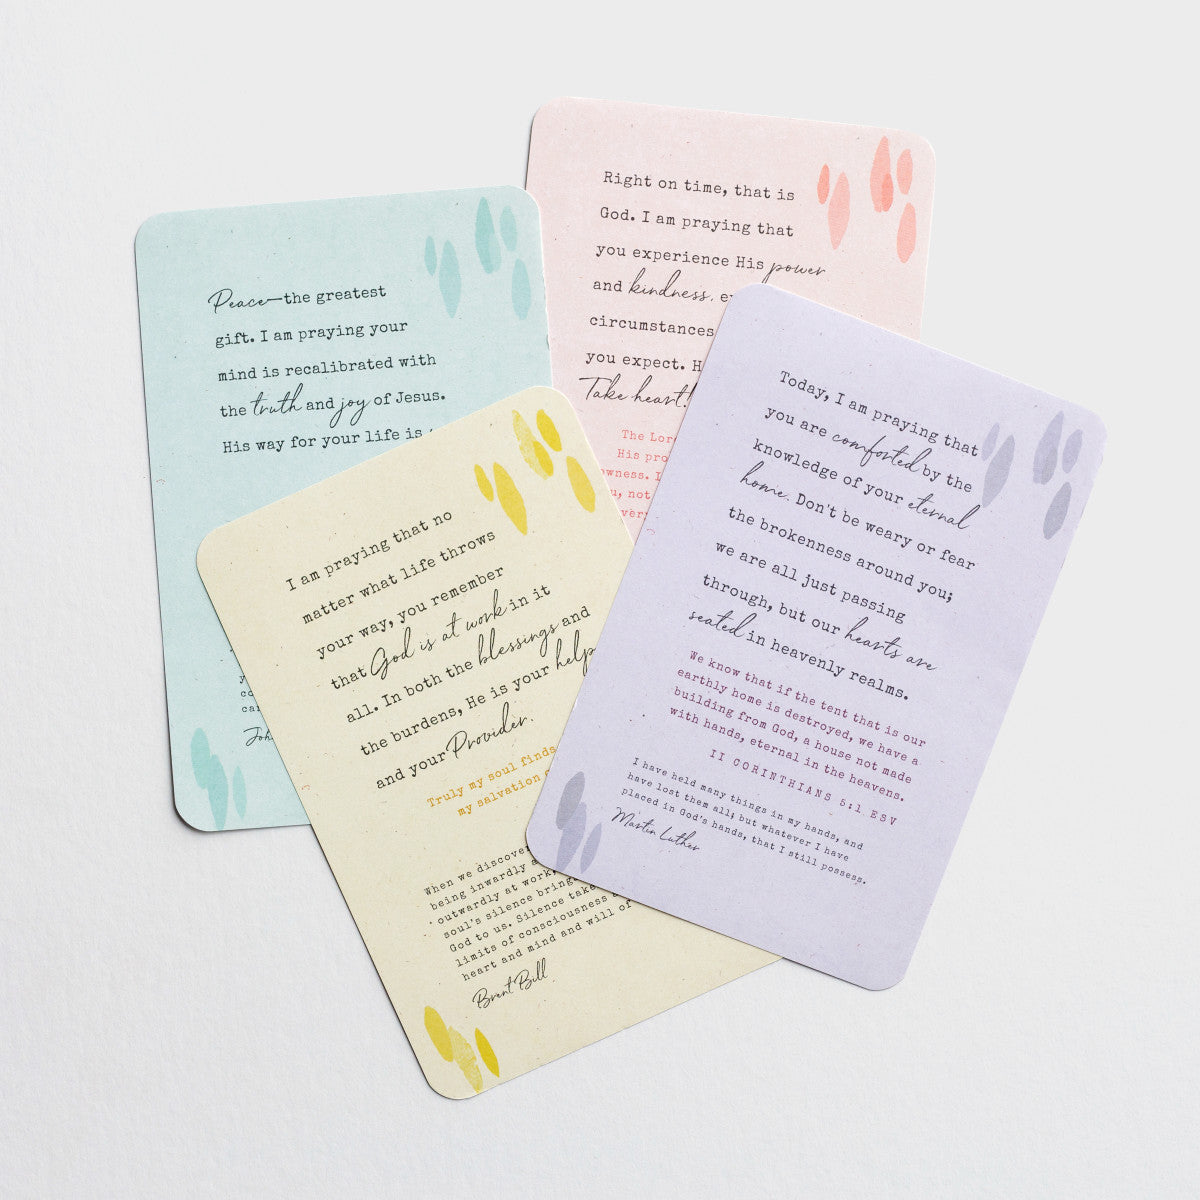 Peace—the greatest
gift. I am praying your
mind is recalibrated with
the truth and joy of Jesus.
His way for your life is
Joh
Right on time, that is
God. I am praying that
you experience His power
and kindness,
circumstances
you expect. H
Take heart!
The Lor
His pro
owness. I
u, not
very
I am praying that no
matter what life throws
your way, you remember
that God is at work in it
all. In both the blessings and
the burdens, He is your help
and your Provider.
Truly my soul finds
my salvation
When we discove
being inwardly
outwardly at work,
soul's silence bring
God to us. Silence take
limits of consciousness
heart and mind and will of
Brent Bill
Today, I am praying that
you are comforted by the
knowledge of your eternal
home. Don't be weary or fear
the brokenness around you;
we are all just passing
through, but our hearts are
seated in heavenly realms.
We know that if the tent that is our
earthly home is destroyed, we have a
building from God, a house not made
with hands, eternal in the heavens.
II CORINTHIANS 5:1 ESV
I have held many things in my hands, and
have lost them all; but whatever I have
placed in God's hands, that I still possess.
Martin Luther